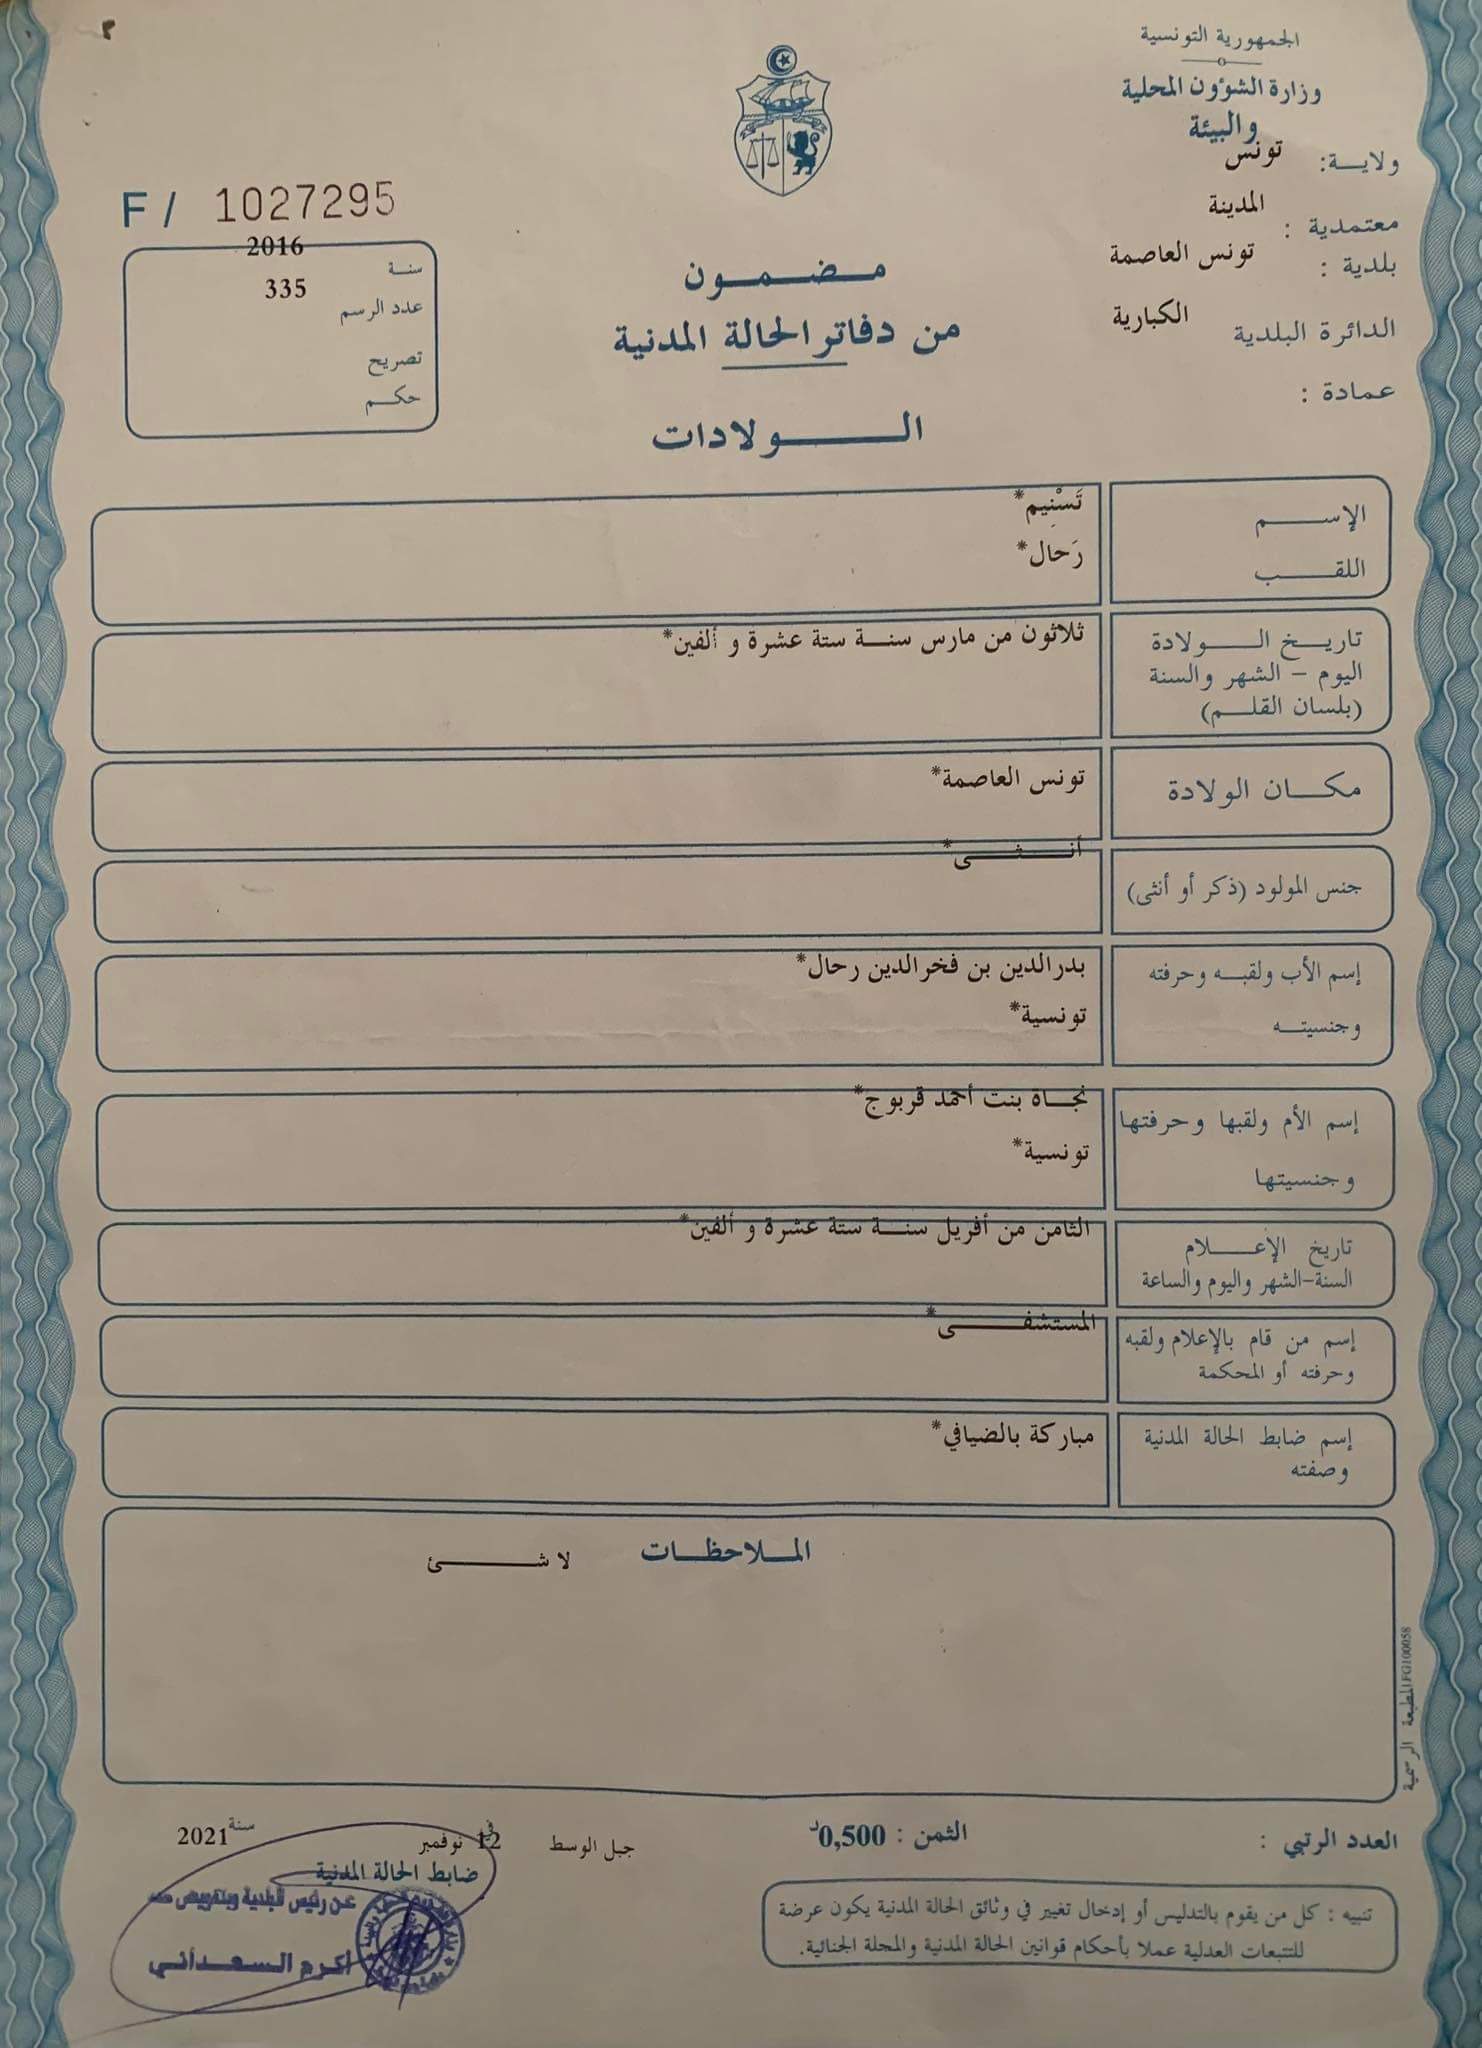 الجمهورية التونسية
وزارة الشؤون المحلية
والبيئة
ولايــة: تونس
معتمدية : المدينة
بلدية : تونس العاصمة
الدائرة البلدية الكبارية
عمادة :
F / 1027295
سنة 2016
عدد الرسم 335
تصريح
حكم
مضمون
من دفاتر الحالة المدنية
الولادات
الإسم تَسْنِيم*
اللقب رَحال*
تاريخ الولادة ثلاثون من مارس سنة ستة عشرة و ألفين*
اليوم - الشهر والسنة
(بلسان القلم)
مكان الولادة تونس العاصمة*
جنس المولود (ذكر أو أنثى) أنثى*
إسم الأب ولقبه وحرفته بدرالدين بن فخرالدين رحال*
وجنسيته تونسية*
إسم الأم ولقبها وحرفتها نجاة بنت أحمد قربوج*
وجنسيتها تونسية*
تاريخ الإعلام الثامن من أفريل سنة ستة عشرة و ألفين*
السنة-الشهر واليوم والساعة
إسم من قام بالإعلام ولقبه المستشفى*
وحرفته أو المحكمة
إسم ضابط الحالة المدنية مباركة بالضيافي*
وصفته
الملاحظات لا شئ
المطبعة الرسمية FG100058
العدد الرتبي : الثمن : 0,500د
جبل الوسط في 12 نوفمبر سنة 2021
ضابط الحالة المدنية
عن رئيس البلدية وبتفويض منه
أكرم السعداني
تنبيه : كل من يقوم بالتدليس أو إدخال تغيير في وثائق الحالة المدنية يكون عرضة
للتتبعات العدلية عملا بأحكام قوانين الحالة المدنية والمجلة الجنائية.